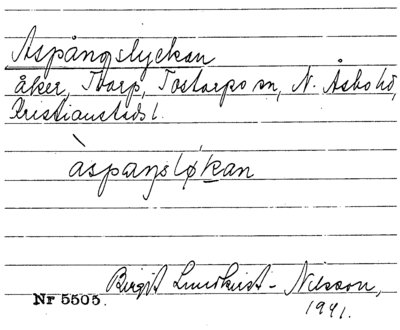 Aspångslyckan
åker, Torp, Tostarps sn, N. Åsbo hd,
Kristianstads l.
àspaŋsløkan
Birgit Lundkvist-Nilsson,
Nr 5505.
1941.